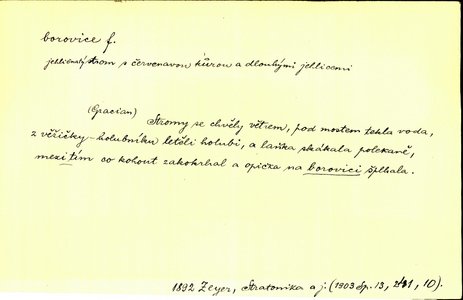 borovice f.
jehličnatý strom s červenavou kůrou a dlouhými jehlicemi
(Gracian)
Stromy se chvěly větrem, pod mostem tekla voda,
z věžičky-holubníku letěli holubi, a laňka skákala polekaně,
mezitím co kohout zakokrhal a opička na borovici šplhala.
1892 Zeyer, Stratonika a j. (1903 Sp. 13, 231, 10).